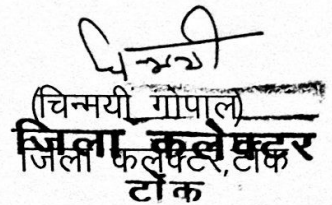 चिन्मयी
(चिन्मयी गोपाल)
जिला कलेक्टर
जिला कलेक्टर, टोंक
टोंक